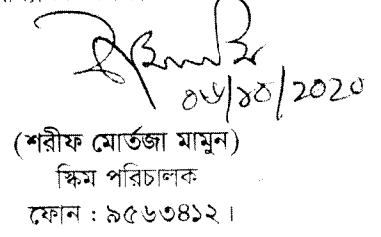 ০৬/১০/2020
(শরীফ মোর্তজা মামুন)
স্কিম পরিচালক
ফোন : ৯৫৬৩৪১২।